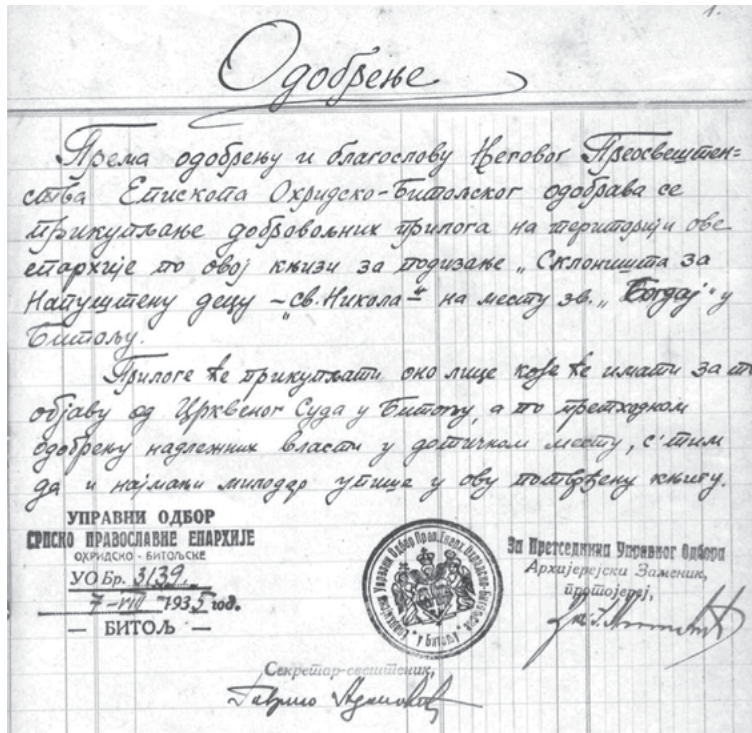 1.
Одобрење
Према одобрењу и благослову Његовог Преосвештен=
ства Епископа Охридско-Битољског одобрава се
прикупљање добровољних прилога на територији ове
епархије по овој књизи за подизање „Склоништа за
Напуштену децу – „св. Никола“ на месту зв. „Богдај“ у
Битољу.
Прилоге ће прикупљати оно лице које ће имати за т
објаву од Црквеног Суда у Битољу, а по претходном
одобрењу надлежних власти у дотичном месту, с'тим
да и најмањи милодар упише у ову потврђену књигу.
УПРАВНИ ОДБОР
СРПСКО ПРАВОСЛАВНЕ ЕПАРХИЈЕ
ОХРИДСКО - БИТОЉСКЕ
УО Бр. 3139.
7-VIII-1935 год.
— БИТОЉ —
За Претседника Управног Одбора
Архијерејски Заменик,
протојереј,
Управни Одбор Прав. Епарх. Охридско-Битољске
у Битољу
Секретар-свештеник,